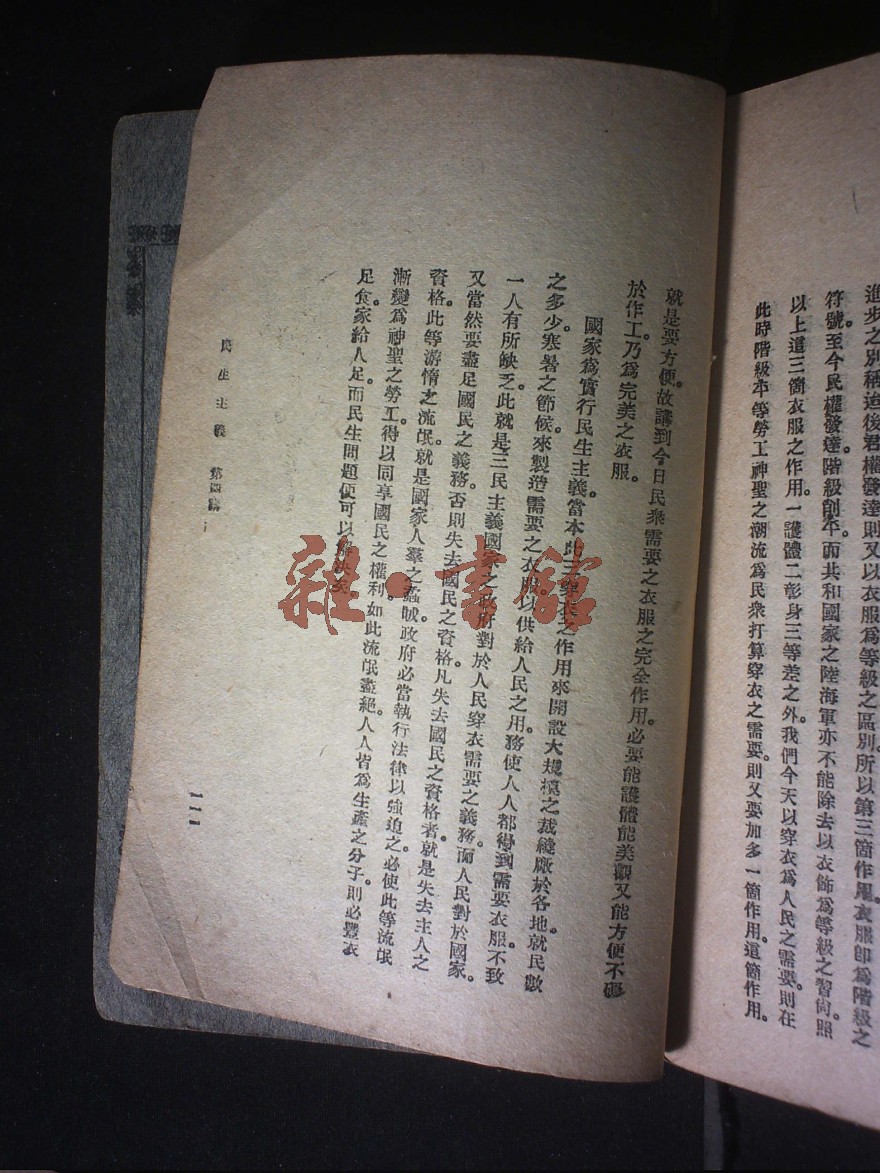 進步之別稱迨後君權發達則又以衣服爲等級之區別。所以第三箇作用。衣服卽爲階級之
符號。至今民權發達。階級創平。而共和國家之陸海軍亦不能除去以衣飾爲等級之習尙。照
以上這三箇衣服之作用。一護體二彰身三等差之外。我們今天以穿衣爲人民之需要。則在
此時階級平等勞工神聖之潮流。爲民衆打算穿衣之需要。則又要加多一箇作用。這箇作用。
就是要方便。故講到今日民衆需要之衣服之完全作用。必要能護體能美觀又能方便不礙
於作工。乃爲完美之衣服。
國家爲實行民生主義。當本此三穿衣之作用來開設大規模之裁縫廠於各地。就民數
之多少。寒暑之節候。來製造需要之衣服。以供給人民之用。務使人人都得到需要衣服。不致
一人有所缺乏。此就是三民主義國家之政府對於人民穿衣需要之義務。而人民對於國家。
又當然要盡足國民之義務。否則失去國民之資格。凡失去國民之資格者。就是失去主人之
資格。此等游惰之流氓。就是國家人羣之蟊賊。政府必當執行法律以強迫之。必使此等流氓
漸變爲神聖之勞工。得以同享國民之權利。如此流氓盡絕。人人皆爲生產之分子。則必豐衣
足食。家給人足。而民生問題便可以解決矣
民生主義 第四講
一一一
雜·書館